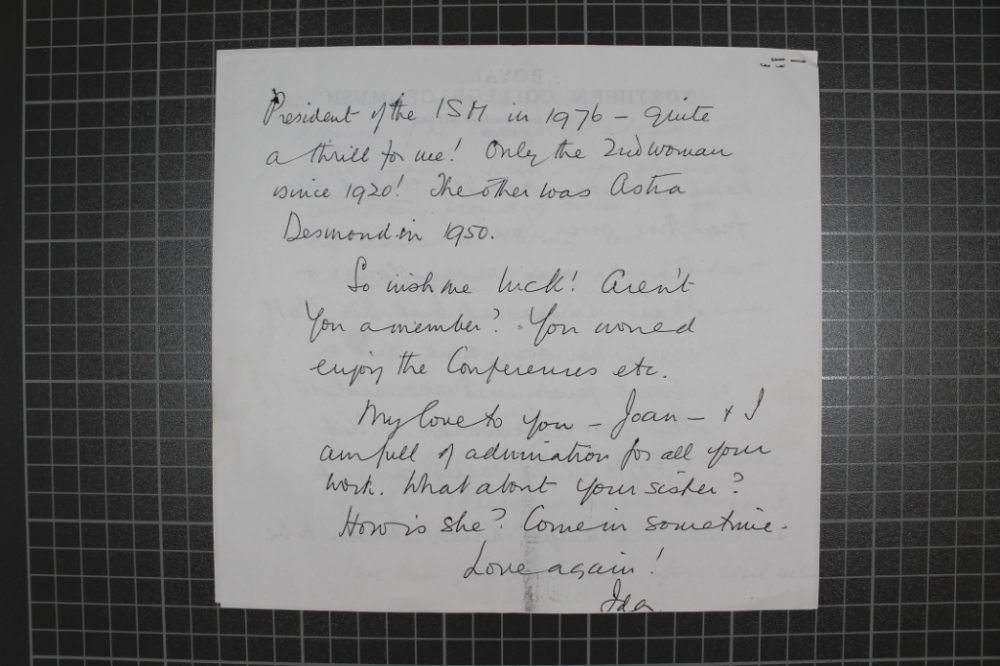 President of the ISM in 1976 – quite
a thrill for me! Only the 2nd woman
since 1920! The other was Astra
Desmond in 1950.
So wish me luck! Aren't
you a member? You would
enjoy the Conferences etc.
My love to you – Joan – & I
am full of admiration for all your
work. What about your sister?
How is she? Come in sometime.
Love again!
Ida
ROYAL
NORTHERN COLLEGE OF MUSIC